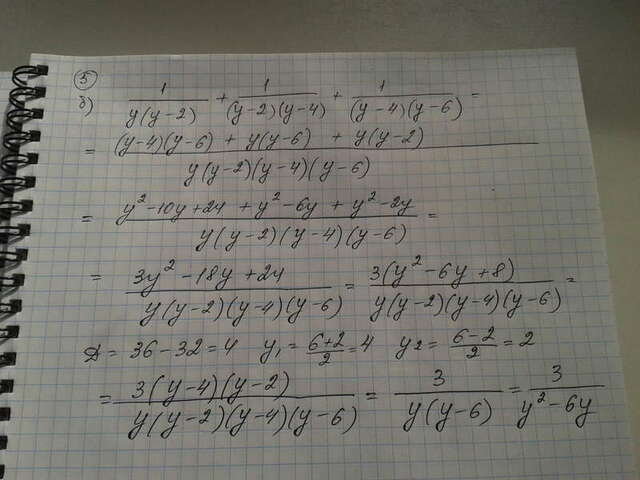 5
б) 1/(y(y-2)) + 1/((y-2)(y-4)) + 1/((y-4)(y-6)) =
= ((y-4)(y-6) + y(y-6) + y(y-2))/(y(y-2)(y-4)(y-6))
= (y²-10y+24 + y²-6y + y²-2y)/(y(y-2)(y-4)(y-6)) =
= (3y²-18y+24)/(y(y-2)(y-4)(y-6)) = (3(y²-6y+8))/(y(y-2)(y-4)(y-6)) =
Д = 36-32=4 y₁ = (6+2)/2 = 4 y₂ = (6-2)/2 = 2
= (3(y-4)(y-2))/(y(y-2)(y-4)(y-6)) = 3/(y(y-6)) = 3/(y²-6y)